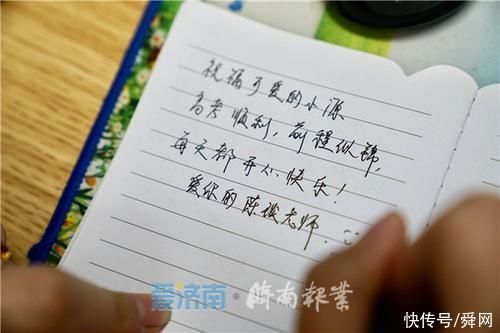 祝福可爱的小源
高考顺利，前程似锦，
每天都开心快乐！
爱你的陈老师.
爱济南·济南报业
快传号/舜网